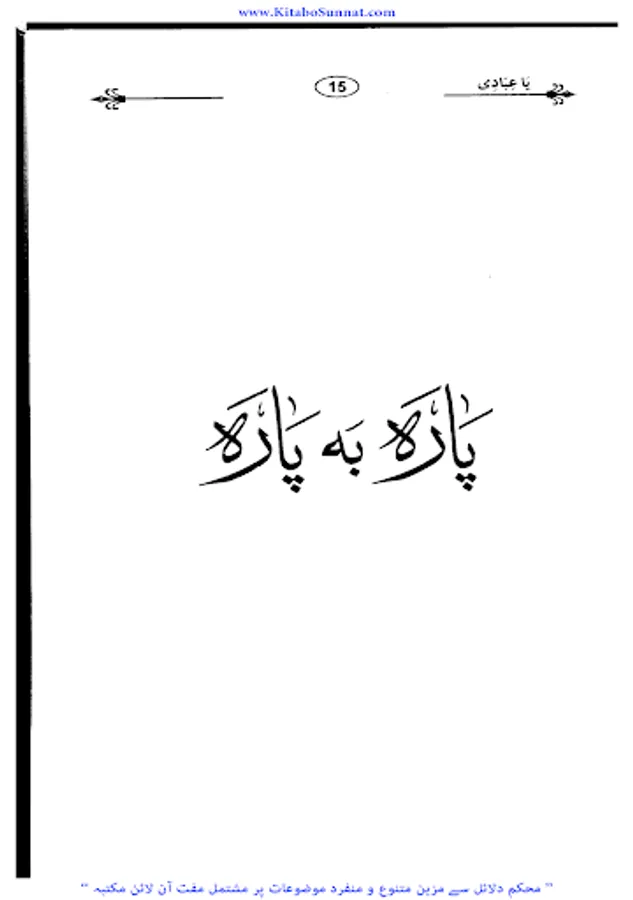 www.KitaboSunnat.com
يَا عِبَادِی
15
پَارَہ بَہ پَارَہ
" محکم دلائل سے مزین متنوع و منفرد موضوعات پر مشتمل مفت آن لائن مکتبہ "